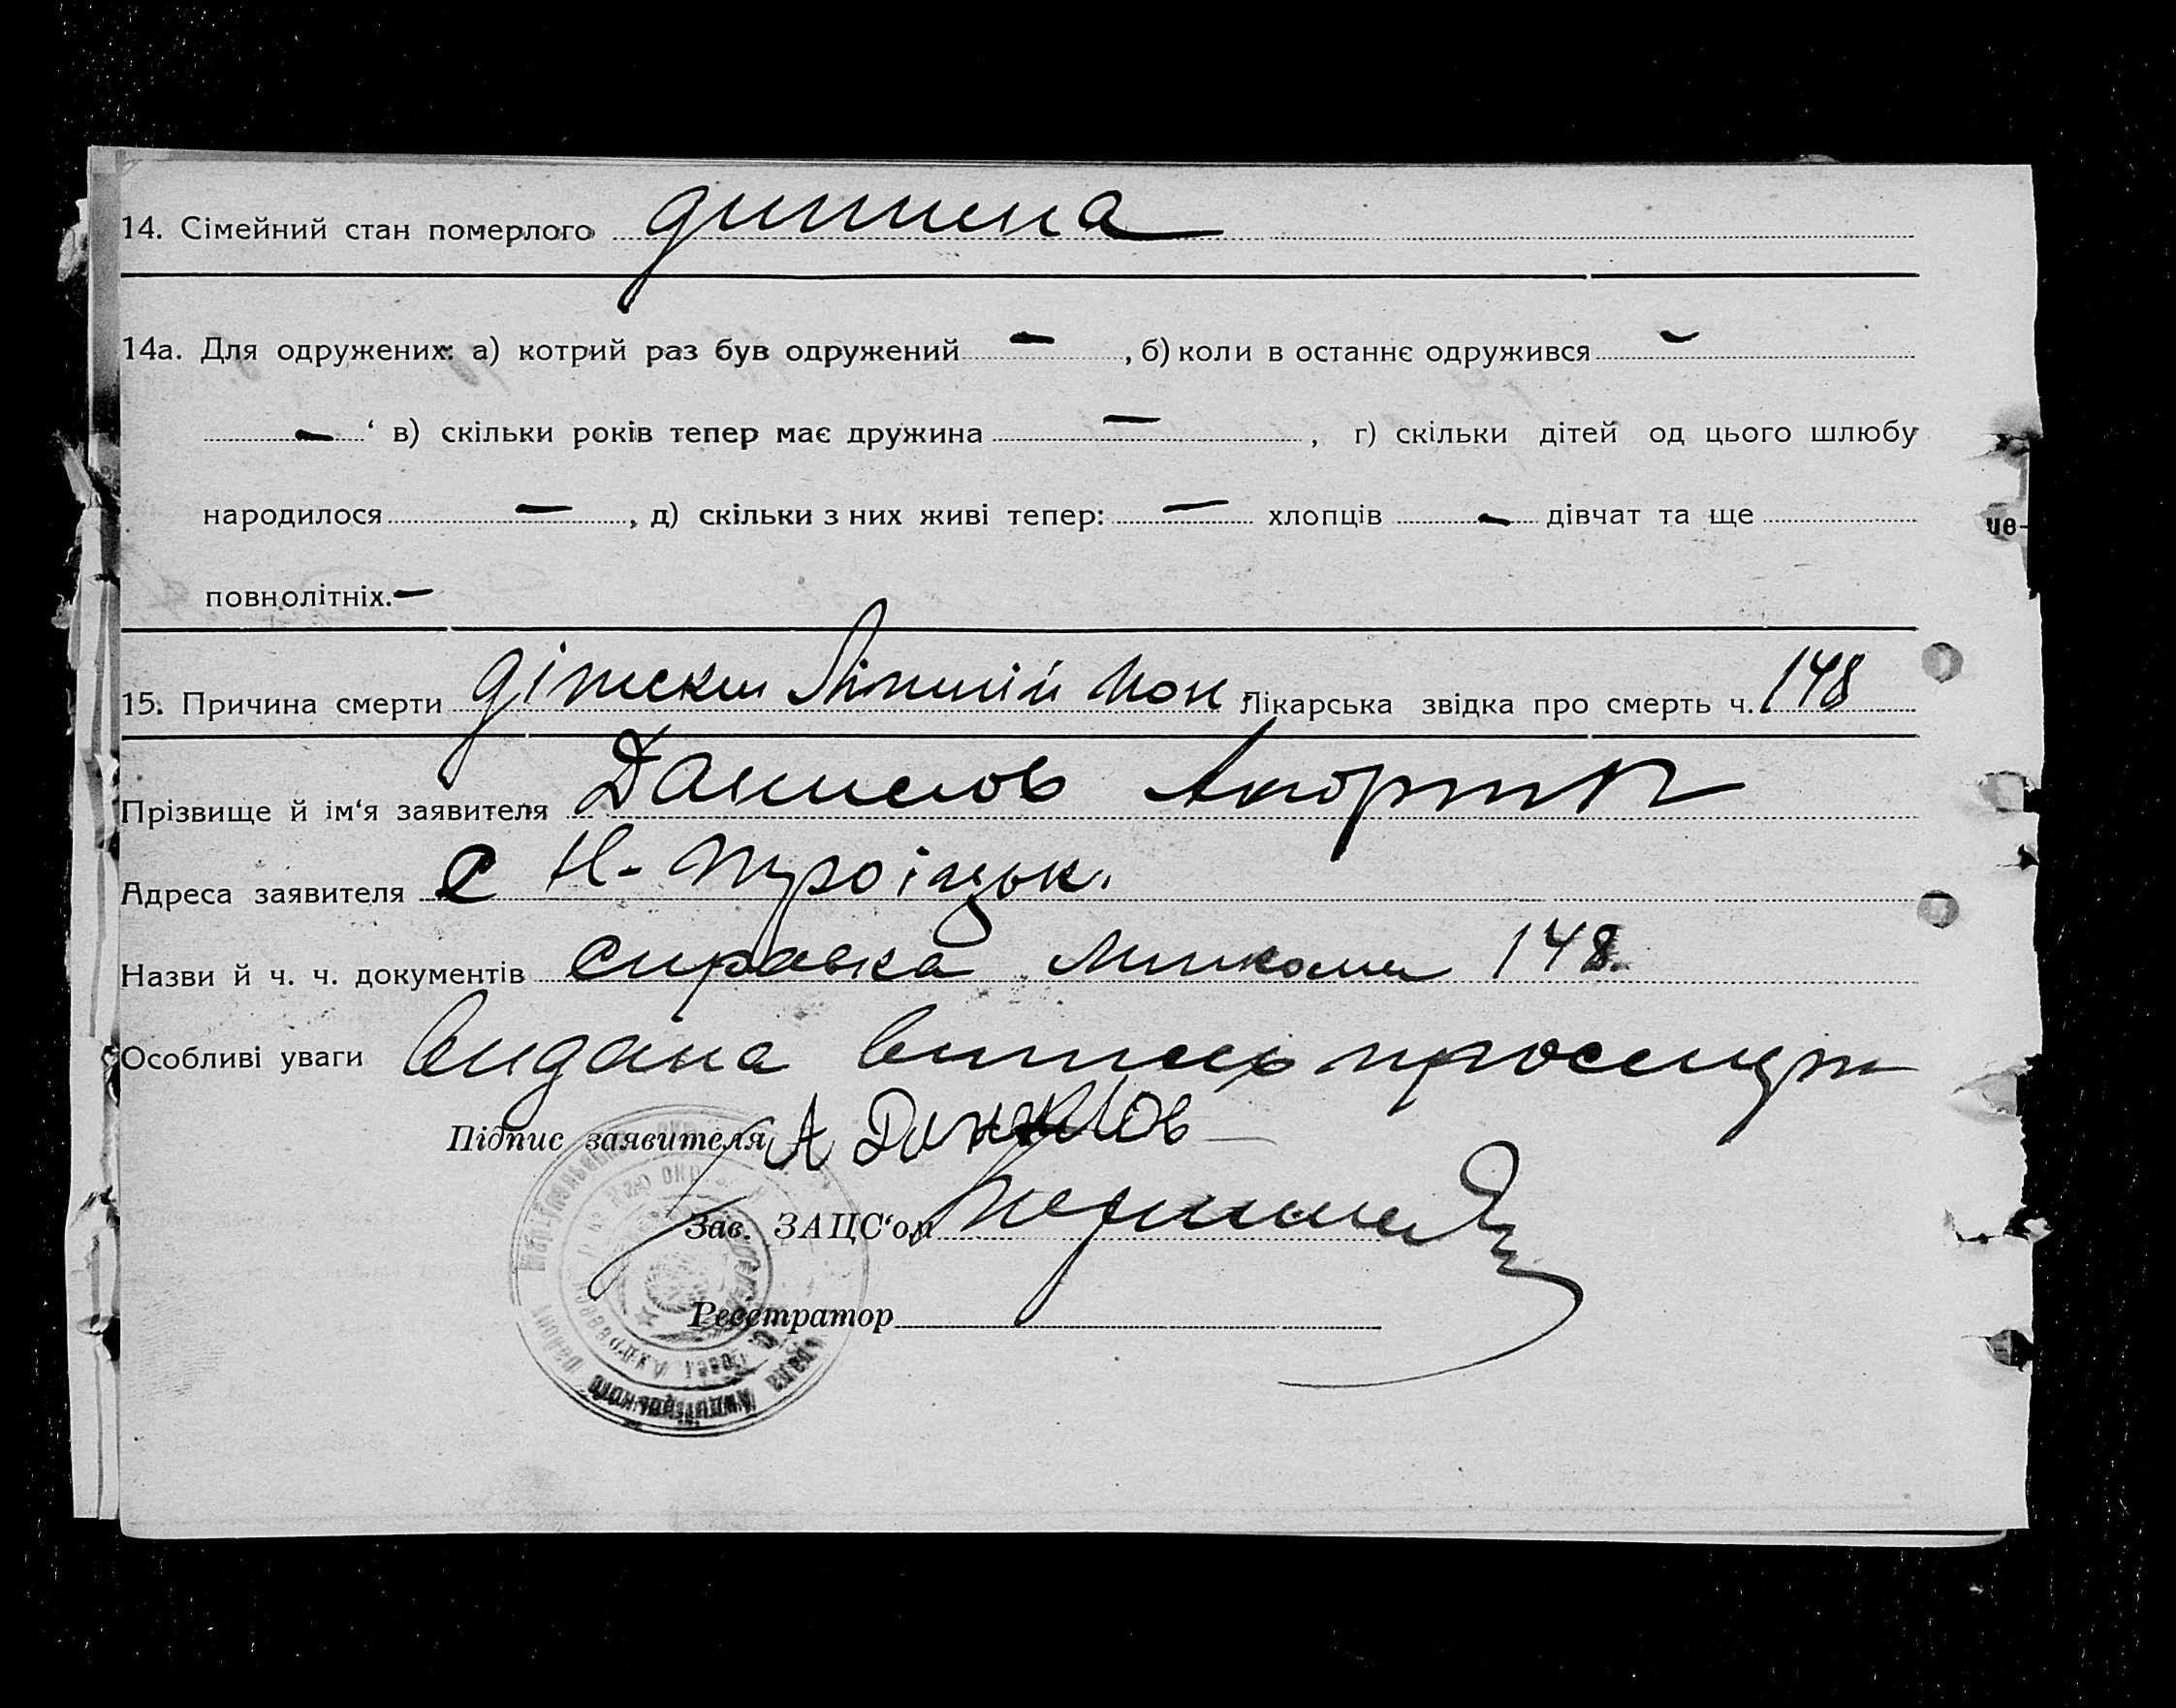 14. Сімейний стан померлого дитина
14а. Для одружених: а) котрий раз був одружений — , б) коли в останнє одружився —
— ‘ в) скільки років тепер має дружина — , г) скільки дітей од цього шлюбу
народилося — , д) скільки з них живі тепер: — хлопців — дівчат та ще
повнолітніх. —
15. Причина смерти Лікарська звідка про смерть ч. 148
Прізвище й ім‘я заявителя Данилов
Адреса заявителя с Н-Троіцьк.
Назви й ч. ч. документів справка 148.
Особливі уваги видана
Підпис заявителя А Данилов
Зав. ЗАЦС‘ом
Реєстратор